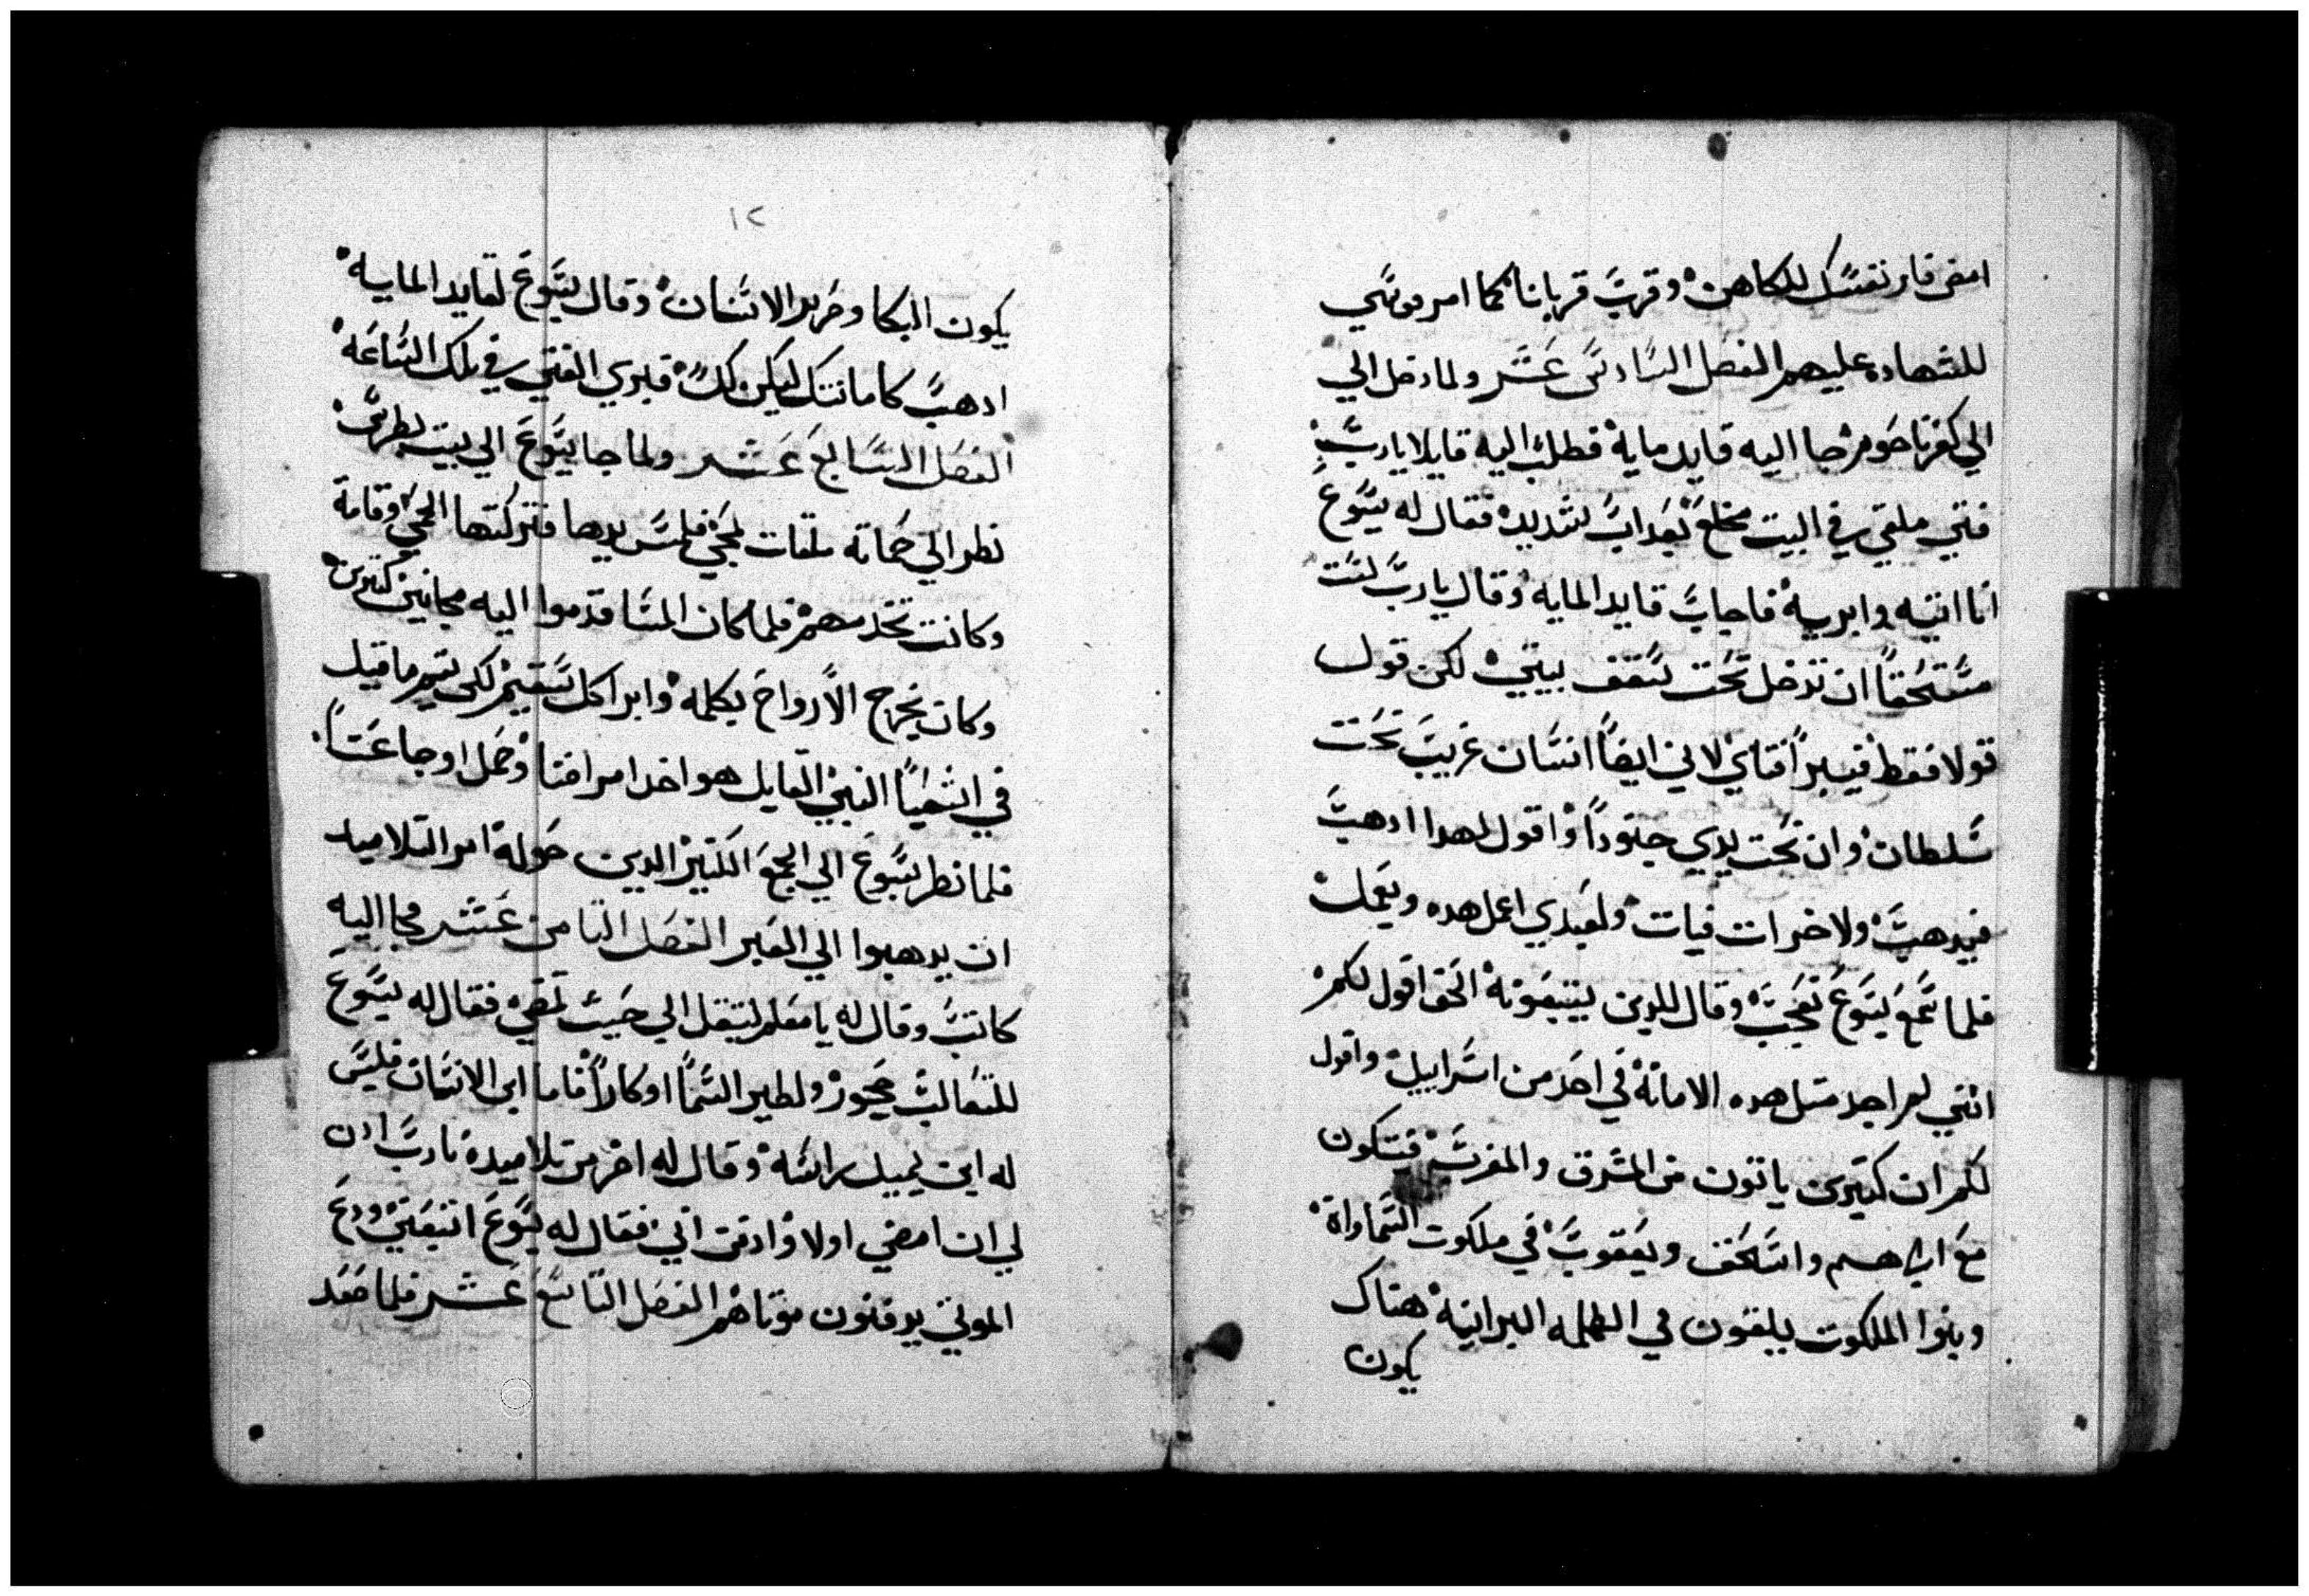 امضي فار نفسك للكاهن وقرب قربانا كما امر موسي
للشهاده عليهم الفصل السادس عشر ولما دخل الي
الي كفرناحوم جا اليه قايد مايه فطلب اليه قايلا يارب
فتي ملقي في البيت مخلع بعداب شديد فقال له يسوع
انا اتيه وابريه فاجاب قايد المايه وقال يارب لست
مستحقا ان تدخل تحت سقف بيتي لكن قول
قولا فقط فيبرا فتاي لاني ايضا انسان غريب تحت
سلطان وان تحت يدي جنودا واقول لهدا ادهب
فيدهب ولاخر ات فيات ولعبدي اعمل هده ويعمل
فلما سمع يسوع تعجب وقال للدين يتبعونه الحق اقول لكم
انني لم اجد متل هده الامانة في احد من اسراييل واقول
لكم ان كتيرين ياتون من المشرق والمغرب فيتكون
مع ابراهيم واسحق ويعقوب في ملكوت السماواة
وبنوا الملكوت يلقون في الظلمه البرانية هناك
يكون
١٢
يكون البكا وضرير الاسنان وقال يسوع لقايد المايه
ادهب كامانتك ليكن لك فبري الفتي في تلك الساعة
الفصل السابع عشر ولما جا يسوع الي بيت بطرس
نظر الي حماته ملقات بحمي فلمس يدها فتركتها الحمي وقامة
وكانت تخدمهم فلما كان المسا قدموا اليه مجانين كتيرين
وكان يخرج الارواح بكلمه وابرا كل سقيم لكي يتم ما قيل
في اشعيا النبي القايل هو اخد امراضنا وحمل اوجاعنا
فلما نظر يسوع الي الجمع الكتير الدين حوله امر التلاميد
ان يدهبوا الي العبر الفصل التامن عشر فجا اليه
كاتب وقال له يا معلم لتبعك الي حيت تمضي فقال له يسوع
للتعالب جحور ولطير السما اوكارا فاما ابن الانسان فليس
له اين يميل راسه وقال له اخر من تلاميده يارب ادن
لي ان امضي اولا وادفن ابي فقال له يسوع اتبعني ودع
الموتي يدفنون موتاهم الفصل التاسع عشر فلما صعد